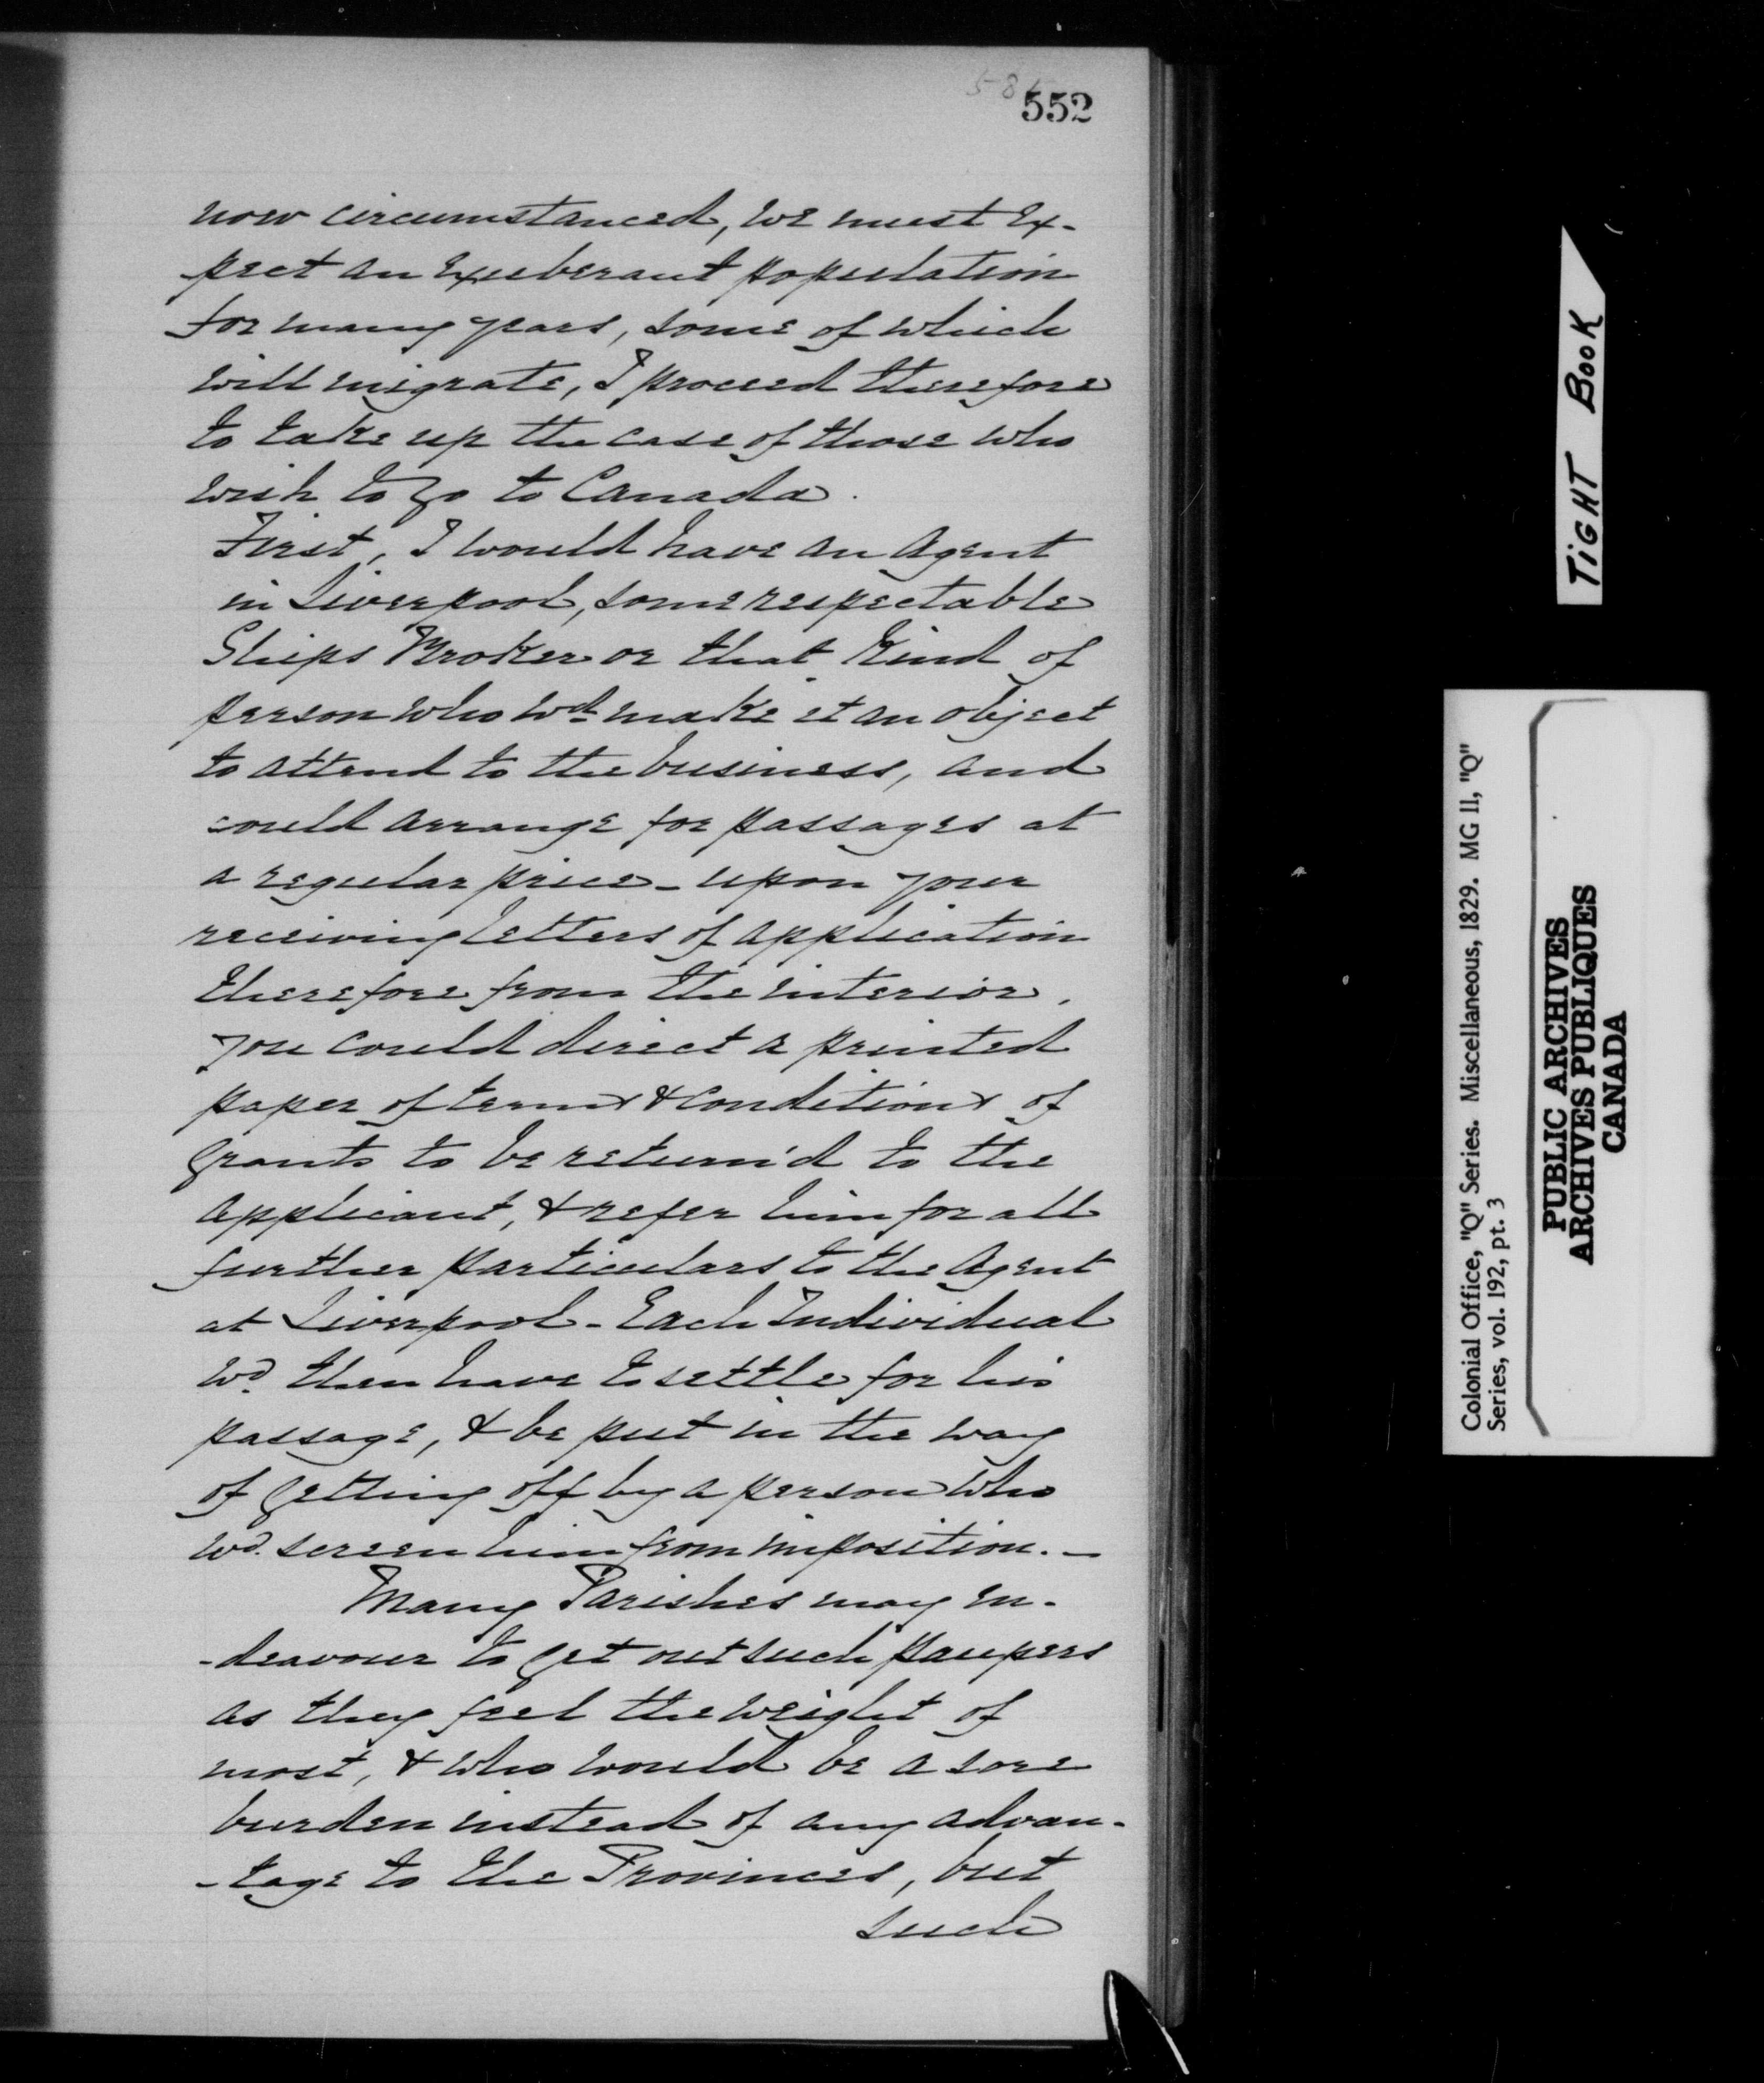 552
now circumstanced, we must ex-
pect an exuberant population
for many years, some of which
will migrate, I proceed therefore
to take up the case of those who
wish to go to Canada.
First, I would have an Agent
in Liverpool, some respectable
Ships Broker or that kind of
person who wd make it an object
to attend to the business, and
could arrange for passages at
a regular price - upon your
receiving letters of application
therefore from the interior,
you could direct a printed
paper of terms & conditions of
grants to be return'd to the
applicant, & refer him for all
further particulars to the Agent
at Liverpool - Each Individual
wd. then have to settle for his
passage, & be put in the way
of getting off by a person who
wd. screen him from imposition. -
Many Parishes may en-
-deavour to get out such paupers
as they feel the weight of
most, & who would be a sore
burden instead of any advan-
-tage to the Provinces, but
such
TIGHT BOOK
Colonial Office, "Q" Series. Miscellaneous, 1829. MG 11, "Q"
Series, vol. 192, pt. 3
PUBLIC ARCHIVES
ARCHIVES PUBLIQUES
CANADA